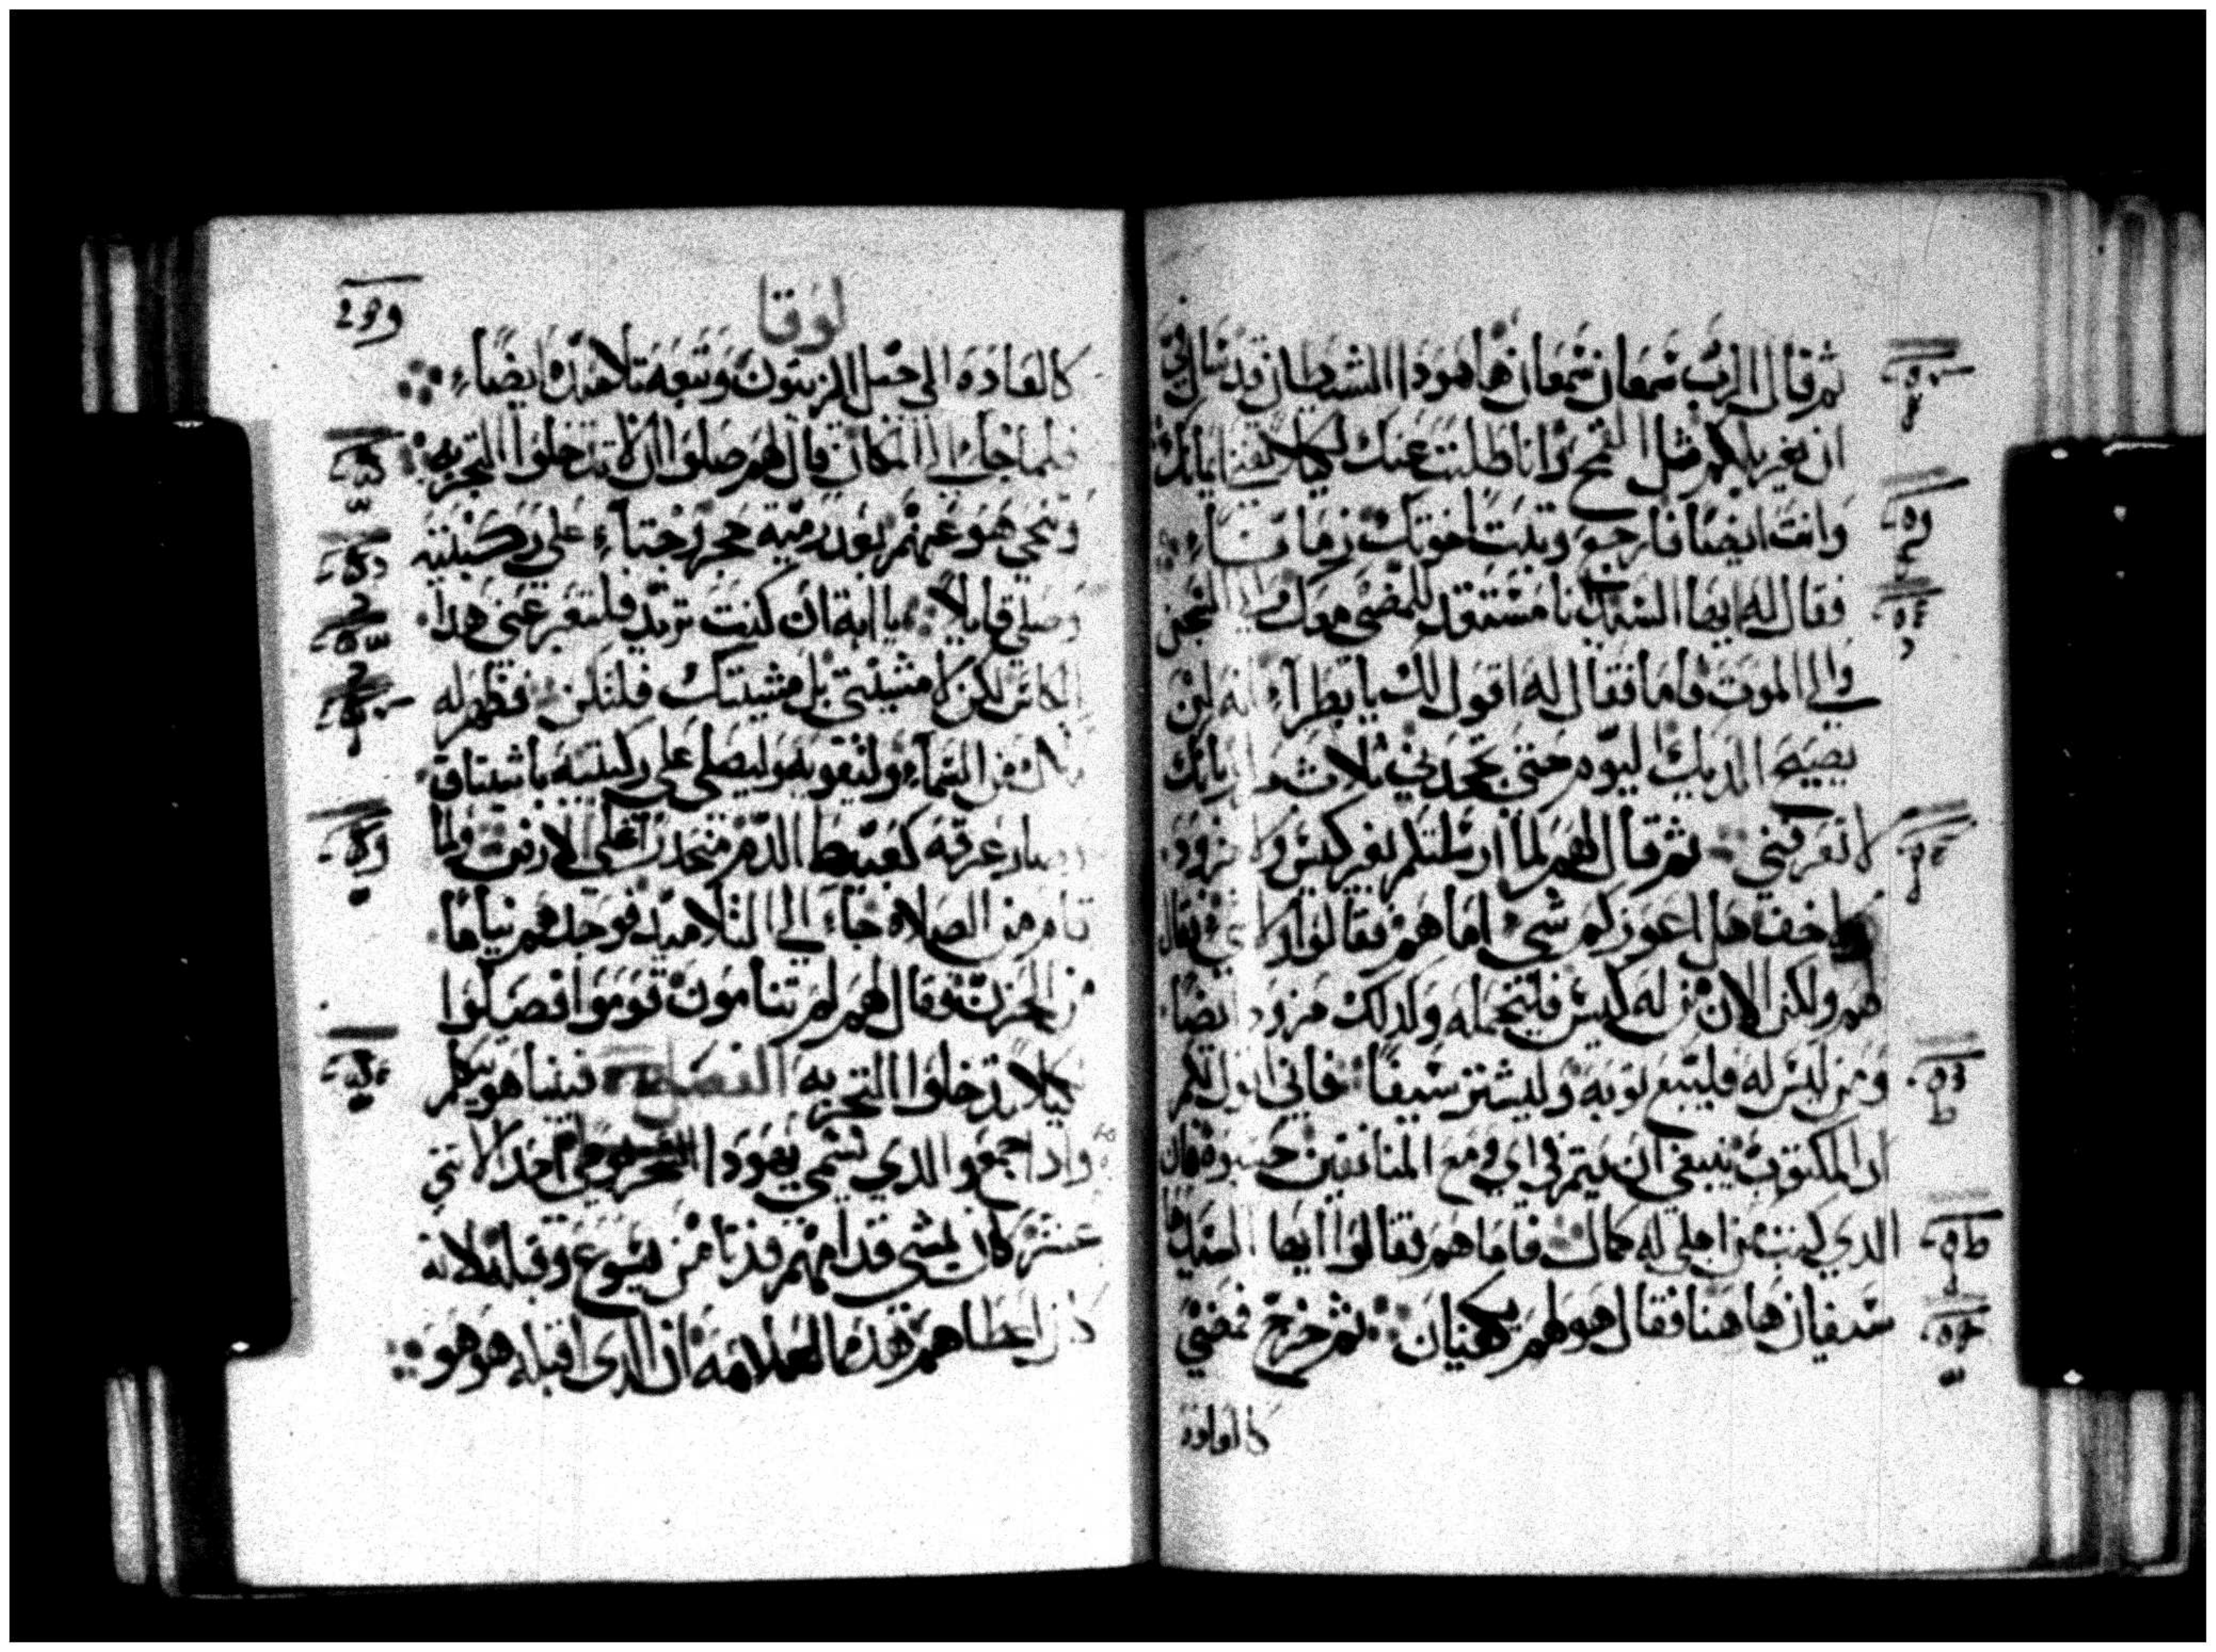 ثم قال الرب شمعان شمعان هاهوذا الشيطان قد سال في
ان يغربلكم مثل القمح وانا طلبت عنك لكيلا يفنا ايمانك
وانت ايضا فارجع وثبت اخوتك زمانا
فقال له ايها السيد انا مستعد للمضي معك والي السجن
والي الموت فاما فقال له اقول لك يا بطرا انه لن
يصيح الديك ليوم حتي تجحدني ثلاث مرا بانك
لا تعرفني ثم قال لهم لما ارسلتكم بغير كيس ولا مزود
ولا خف هل اعوزكم شي اما هم فقالوا ولا شي فقال
لهم ولكن الان من له كيس فليحمله وكذلك مزود ايضا
ومن ليس له فليبيع ثوبه وليشتر سيفا فاني اقول لكم
ان المكتوب ينبغي ان يتم في اي ومع المنافقين حسبوه فان
الذي كتب من اجلي له كمال فاما هم فقالوا ايها السيد
سيفان هاهنا فقال هو لهم يكفيان ثم خرج فمضي
كالعاده
لوقا
كالعاده الي جبل الزيتون وتبعه تلاميذه ايضاء
فلما جاء الي المكان قال لهم صلوا ان لا تدخلوا التجربه
وتنحي هو عنهم بعد رمية حجر وجثاء علي ركبتيه
وصلي قايلا يا ابة ان كنت تريد فلتعبر عني هذا
الكاس لكن لا مشيتي بل مشيتك فلتكن فظهر له
ملاك من السماء وليقويه وليصلي علي ركبتيه باشتياق
وصار عرقه كعبيط الدم منحدرا علي الارض ولما
قام من الصلاه جاء الي التلاميذ فوجدهم نياما
من الحزن فقال لهم لم تنامون قوموا فصلوا
كيلا تدخلوا التجربه الفصل فبينما هو يتكلم
واذا جمع والذي تسمي يهوذا احد الاثني
عشر كان يمشي قدامهم فدنا من يسوع وقبله لانه
كان اعطاهم هذه العلامه ان الذي اقبله هو هو